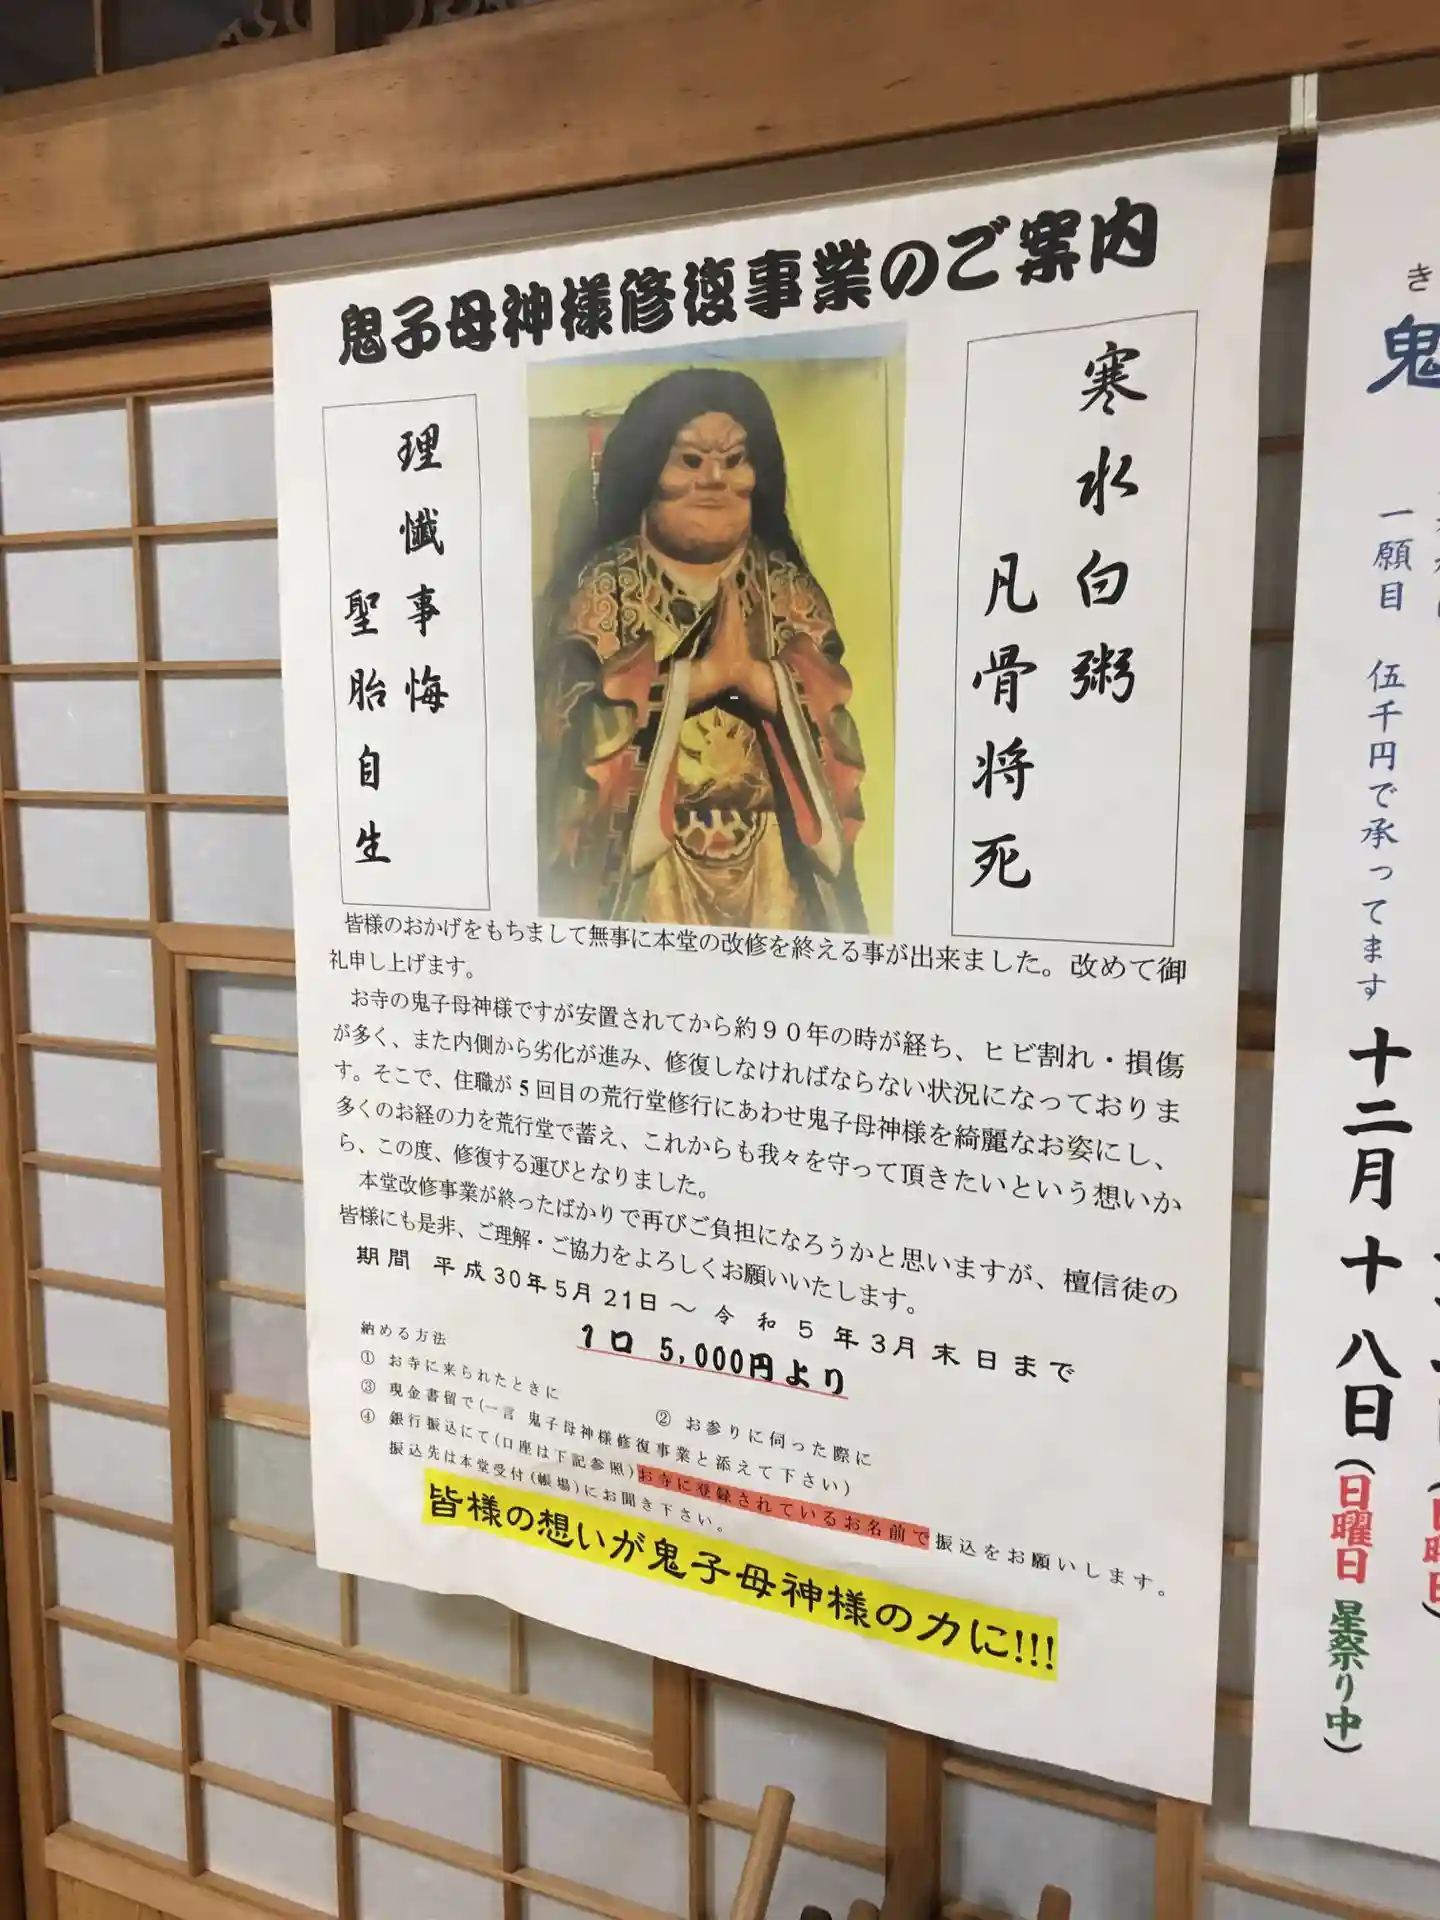 鬼子母神様修復事業のご案内
寒水白粥
凡骨将死
理懺事悔
聖胎自生
皆様のおかげをもちまして無事に本堂の改修を終える事が出来ました。改めて御
礼申し上げます。
お寺の鬼子母神様ですが安置されてから約９０年の時が経ち、ヒビ割れ・損傷
が多く、また内側から劣化が進み、修復しなければならない状況になっておりま
す。そこで、住職が5回目の荒行堂修行にあわせ鬼子母神様を綺麗なお姿にし、
多くのお経の力を荒行堂で蓄え、これからも我々を守って頂きたいという想いか
ら、この度、修復する運びとなりました。
本堂改修事業が終ったばかりで再びご負担になろうかと思いますが、檀信徒の
皆様にも是非、ご理解・ご協力をよろしくお願いいたします。
期間 平成30年5月21日～令和5年3月末日まで
1口 5,000円より
納める方法
① お寺に来られたときに ② お参りに伺った際に
③ 現金書留で(一言 鬼子母神様修復事業と添えて下さい)
④ 銀行振込にて(口座は下記参照)お寺に登録されているお名前で振込をお願いします。
振込先は本堂受付(帳場)にお聞き下さい。
皆様の想いが鬼子母神様の力に!!!
き
鬼
一願目 伍千円で承ってます
十二月十八日(日曜日 星祭り中)